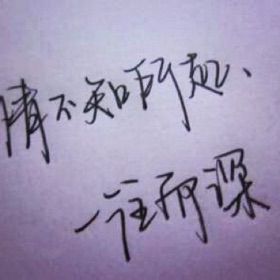 情不知所起、
一往而深